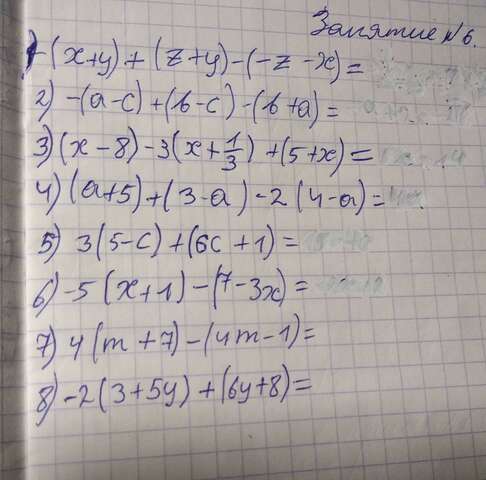 Занятие №6.
1) -(x+y)+(z+y)-(-z-x)=
2) -(a-c)+(b-c)-(b+a)=
3) (x-8)-3(x+1/3)+(5+x)=
4) (a+5)+(3-a)-2(4-a)=
5) 3(5-c)+(6c+1)=
6) -5(x+1)-(7-3x)=
7) 4(m+7)-(4m-1)=
8) -2(3+5y)+(6y+8)=